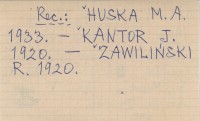 Rec.: "HUSKA M. A.
1933. — "KANTOR J.
1920. — "ZAWILIŃSKI
R. 1920.